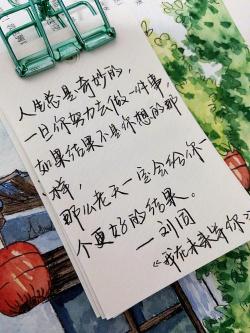 人生总是奇妙的，
一旦你努力去做一件事，
如果结果不是你想的那
样，
那么老天一定会给你一
个更好的结果。
—刘同
《我在未来等你